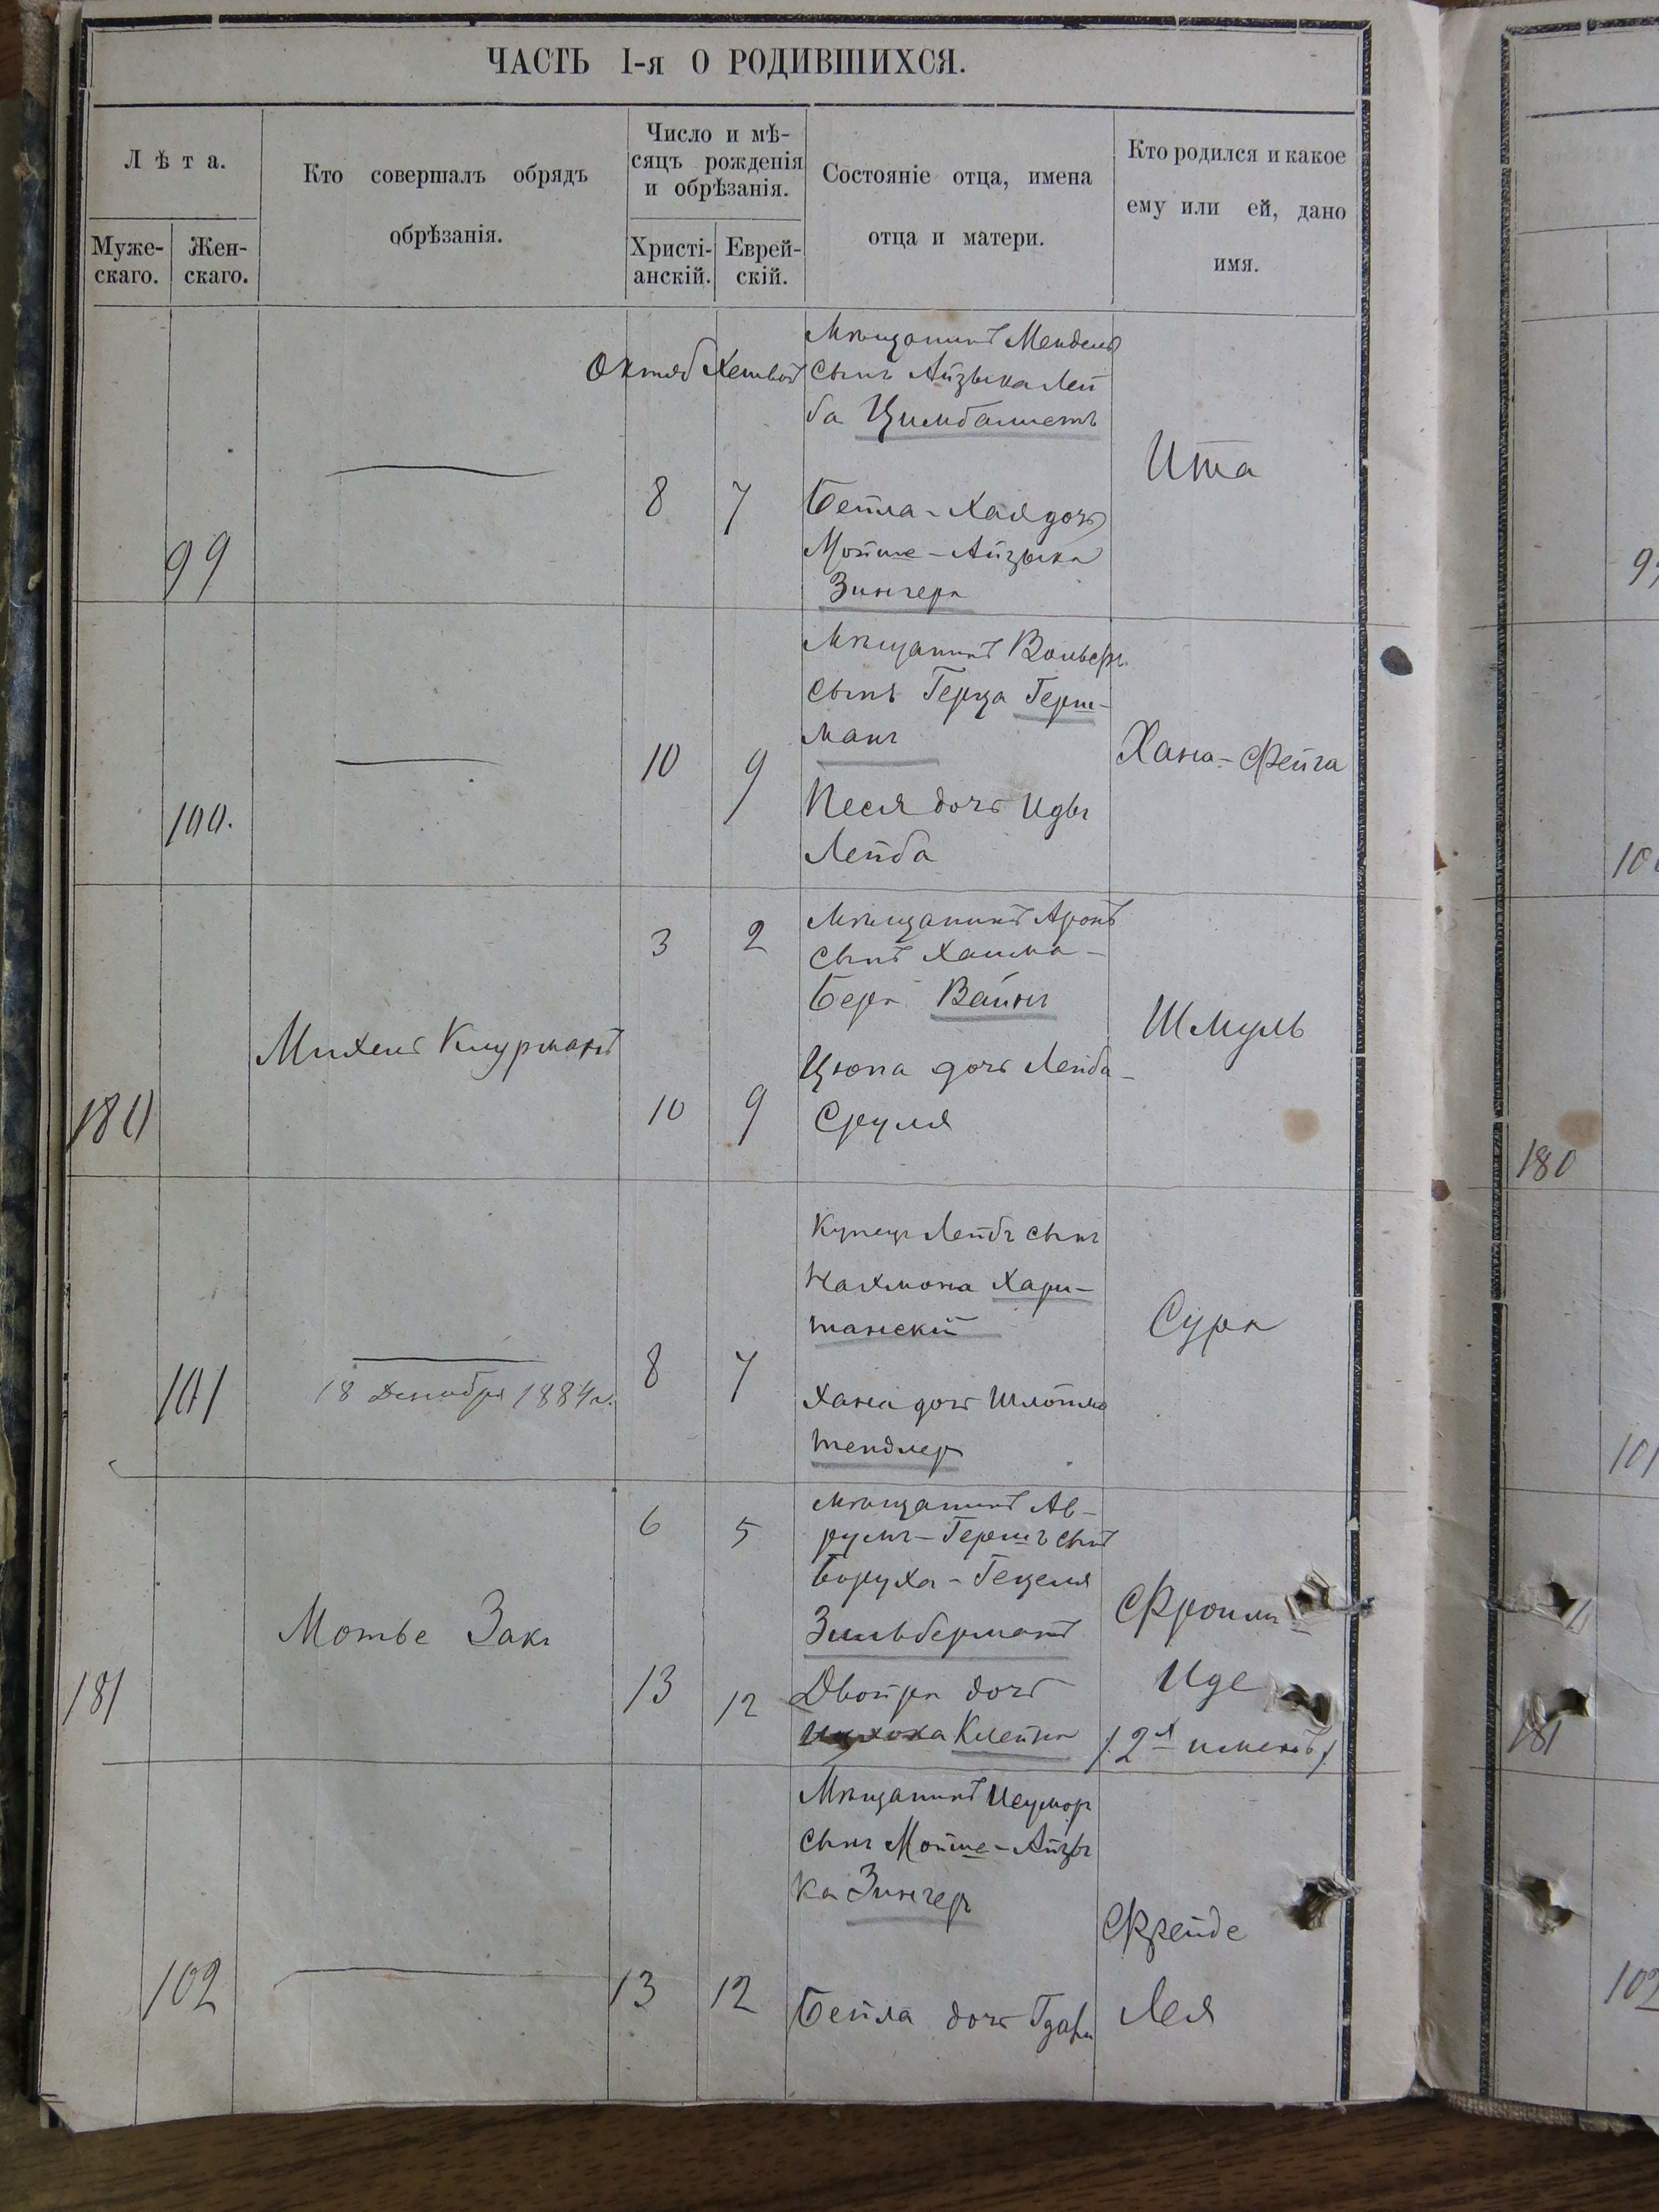 ЧАСТЬ I-я О РОДИВШИХСЯ.
Лѣта.
Муже-
скаго.
Жен-
скаго.
Кто совершалъ обрядъ
обрѣзанія.
Число и мѣ-
сяцъ рожденія
и обрѣзанія.
Христі-
анскій.
Еврей-
скій.
Состояніе отца, имена
отца и матери.
Кто родился и какое
ему или ей, дано
имя.
Октяб Хешвон
99
8
7
Мѣщанинъ Мендель
сынъ Айзыка Лей
ба Цимбалистъ
Бейла-Хая дочь
Мойше-Айзыка
Зингера
Ита
100.
10
9
Мѣщанинъ Вольфъ
сынъ Герца Герш-
манъ
Песя дочь Иды
Лейба
Хана-Фейга
180
Михель Клурманъ
3
2
10
9
Мѣщанинъ Аронъ
сынъ Хаима-
Бера Вайнъ
Цюпа дочь Лейба-
Сруля
Шмуль
101
18 Декабря 1884 г.
8
7
Купецъ Лейбъ сынъ
Нахмона Хари-
танскій
Хана дочь Шлойма
Тендлеръ
Сура
181
Мотье Закъ
6
5
13
12
Мѣщанинъ Ав-
румъ-Гершъ сынъ
Боруха-Гецеля
Зильберманъ
Двойра дочь
Клейна
Фроимъ
Иде
/2я именъ/
102
13
12
Мѣщанинъ
сынъ Мойше-Айзы
ка Зингеръ
Бейла дочь
Фрейде
Лея
180
101
181
102